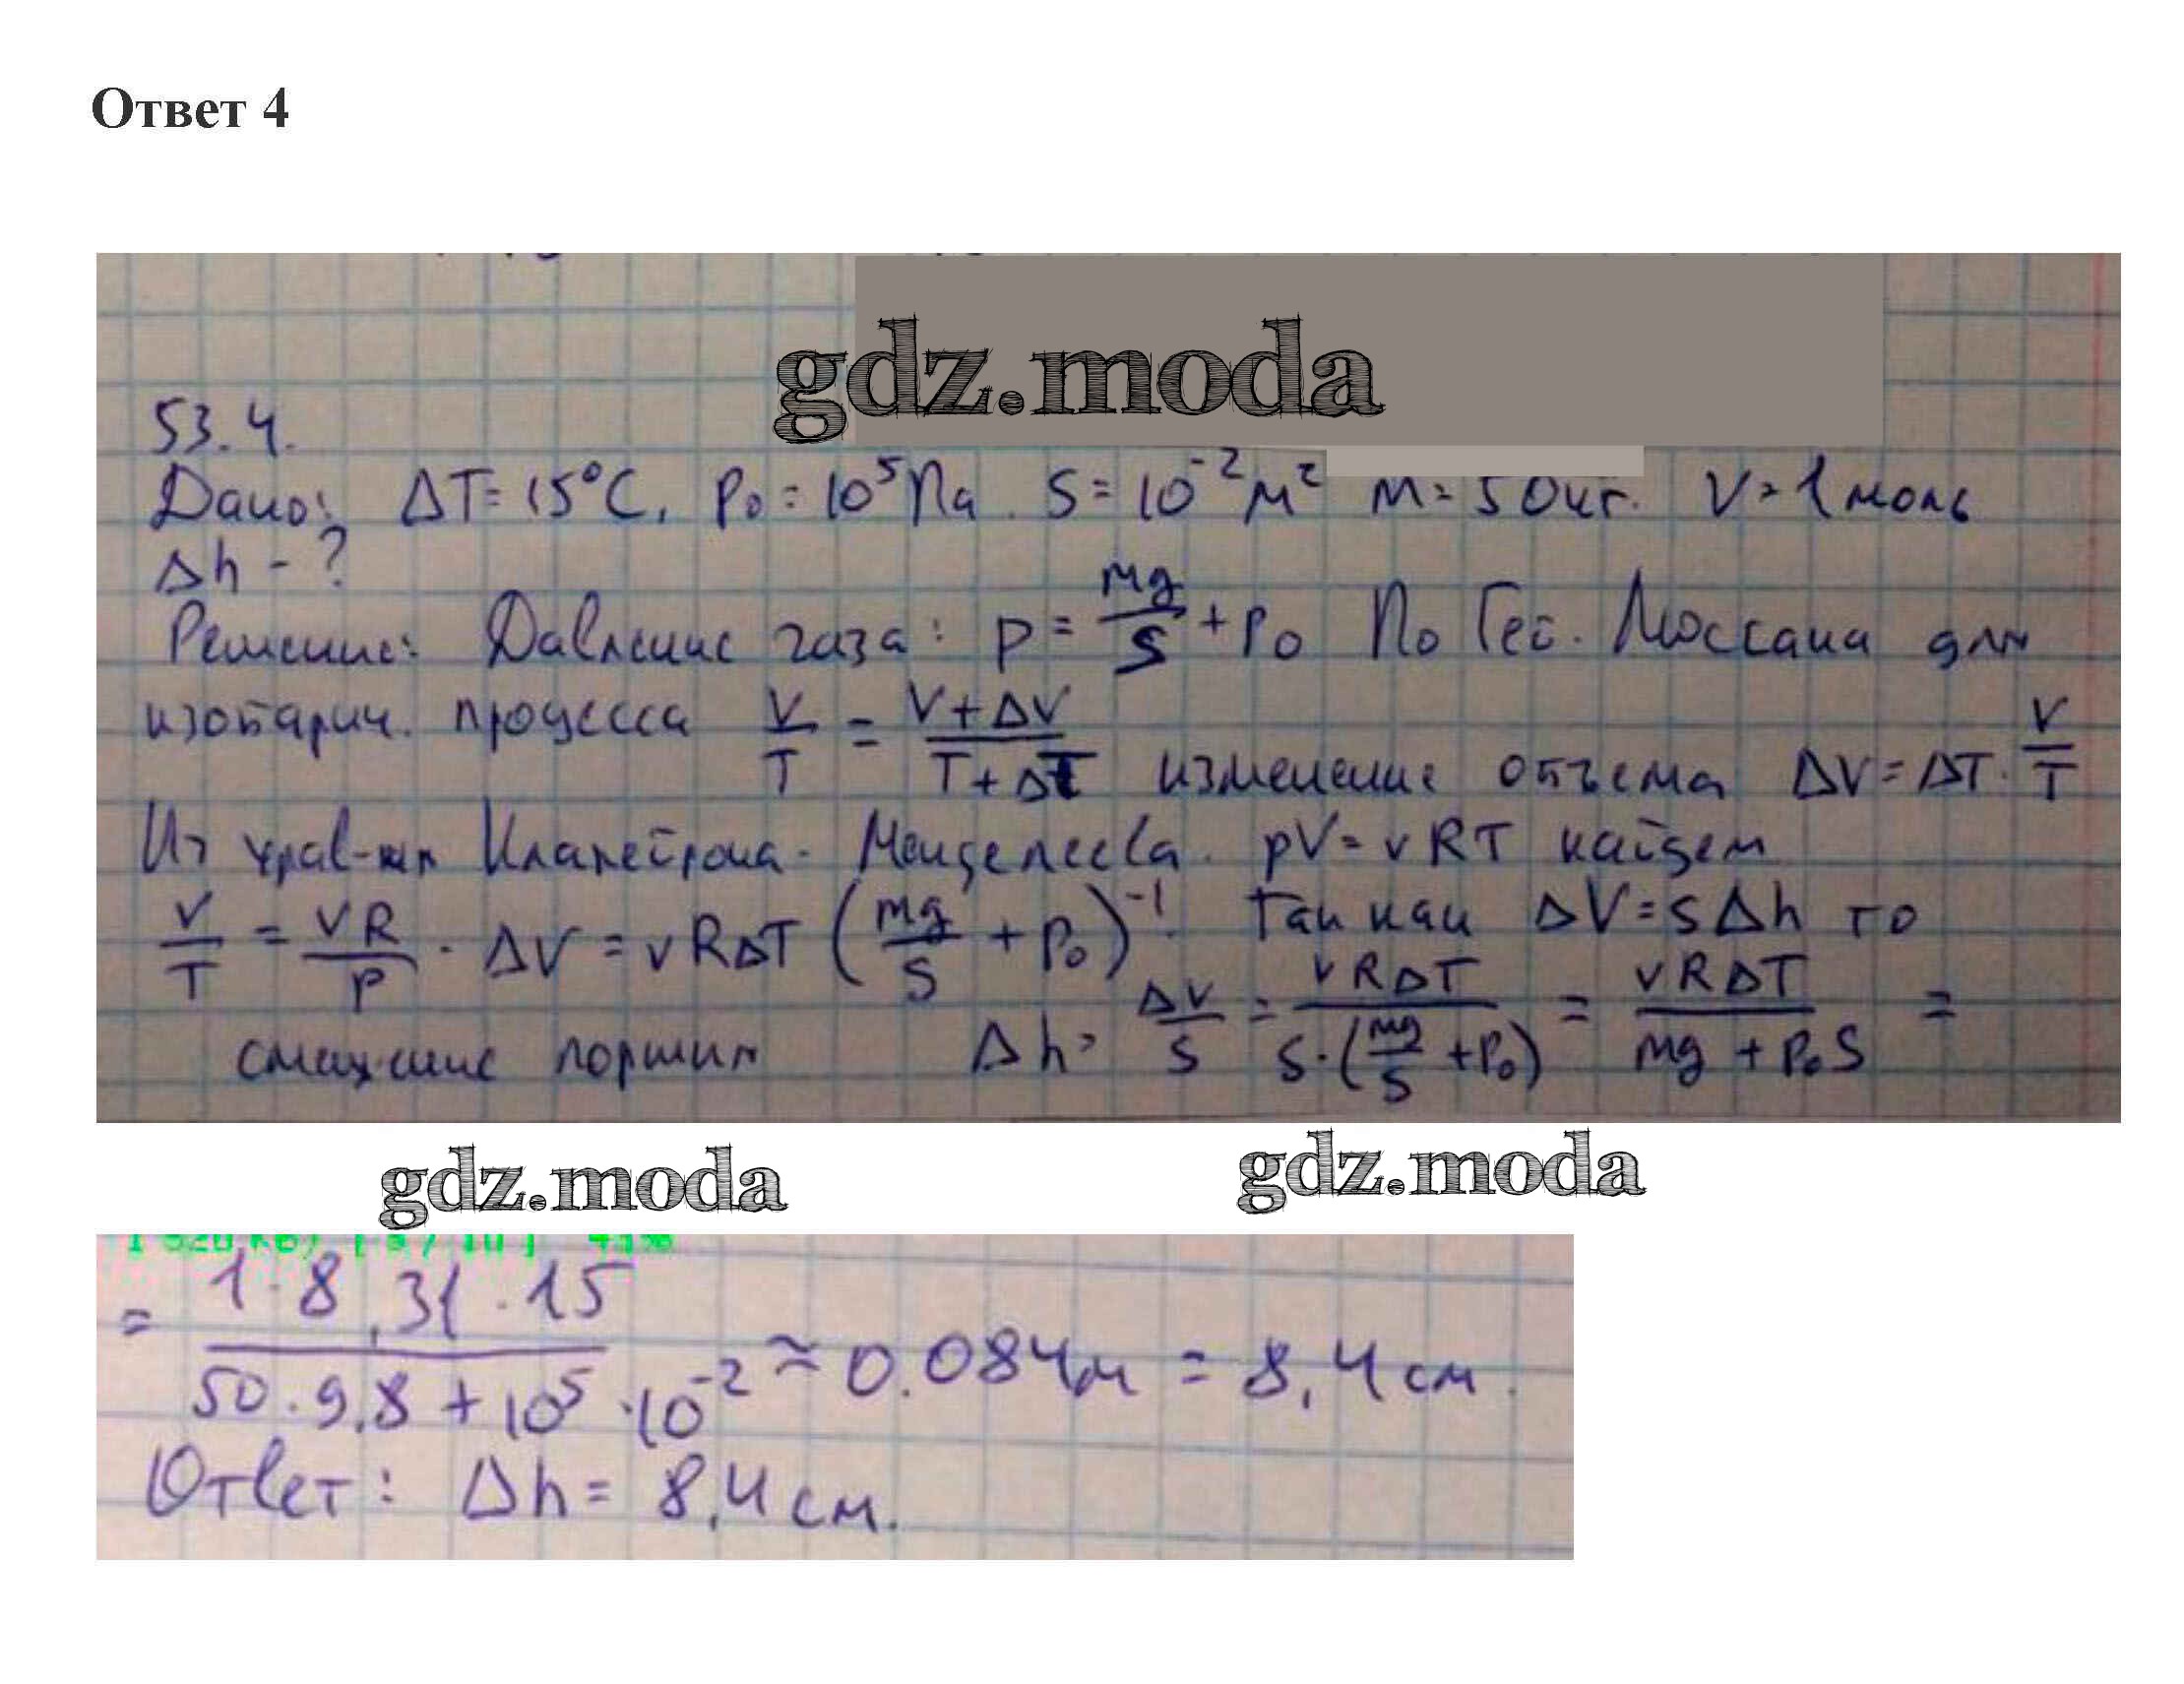 Ответ 4
gdz.moda
53.4.
Дано: ΔT = 15°C, P₀ = 10⁵ Па. S = 10⁻² м² m = 50 кг. ν = 1 моль
Δh - ?
Решение: Давление газа: p = mg/S + P₀ По Гей. Люссака для
изобарич. процесса V/T = (V+ΔV)/(T+ΔT) изменение объема ΔV = ΔT · V/T
Из урав-ия Клапейрона-Менделеева. pV = νRT найдем
V/T = νR/P · ΔV = νRΔT (mg/S + P₀)⁻¹. Так как ΔV = SΔh то
смещение поршня Δh = ΔV/S = νRΔT/(S·(mg/S + P₀)) = νRΔT/(mg + P₀S) =
gdz.moda gdz.moda
= (1·8,31·15)/(50·9,8 + 10⁵·10⁻²) ≈ 0.084м = 8,4 см.
Ответ: Δh = 8,4 см.